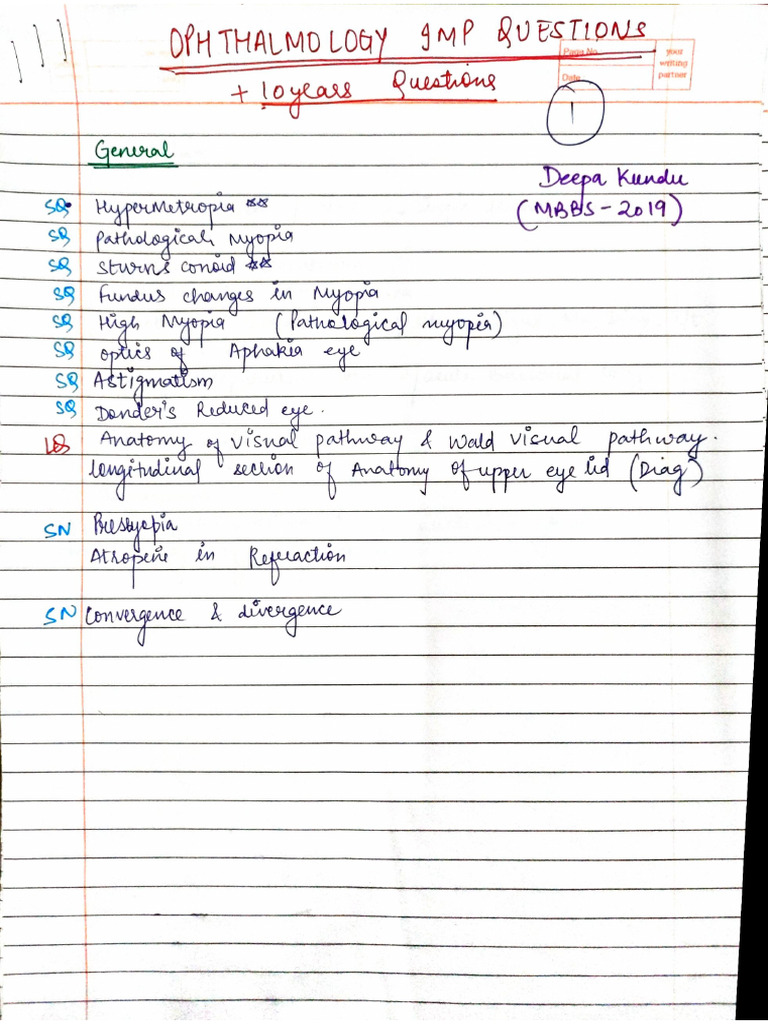 OPHTHALMOLOGY IMP QUESTIONS
+ 10 years Questions
Page No.
Date
your writing partner
1
General
Deepa Kundu
(MBBS-2019)
SQ Hypermetropia **
SQ Pathological Myopia
SQ Sturns conoid **
SQ Fundus changes in Myopia
SQ High Myopia (Pathological myopia)
SQ optics of Aphakia eye
SQ Astigmatism
SQ Donder's Reduced eye.
LQ Anatomy of visual pathway & Wald visual pathway.
longitudinal section of Anatomy of upper eye lid (Diag)
SN Presbyopia
Atropine in Refraction
SN Convergence & divergence